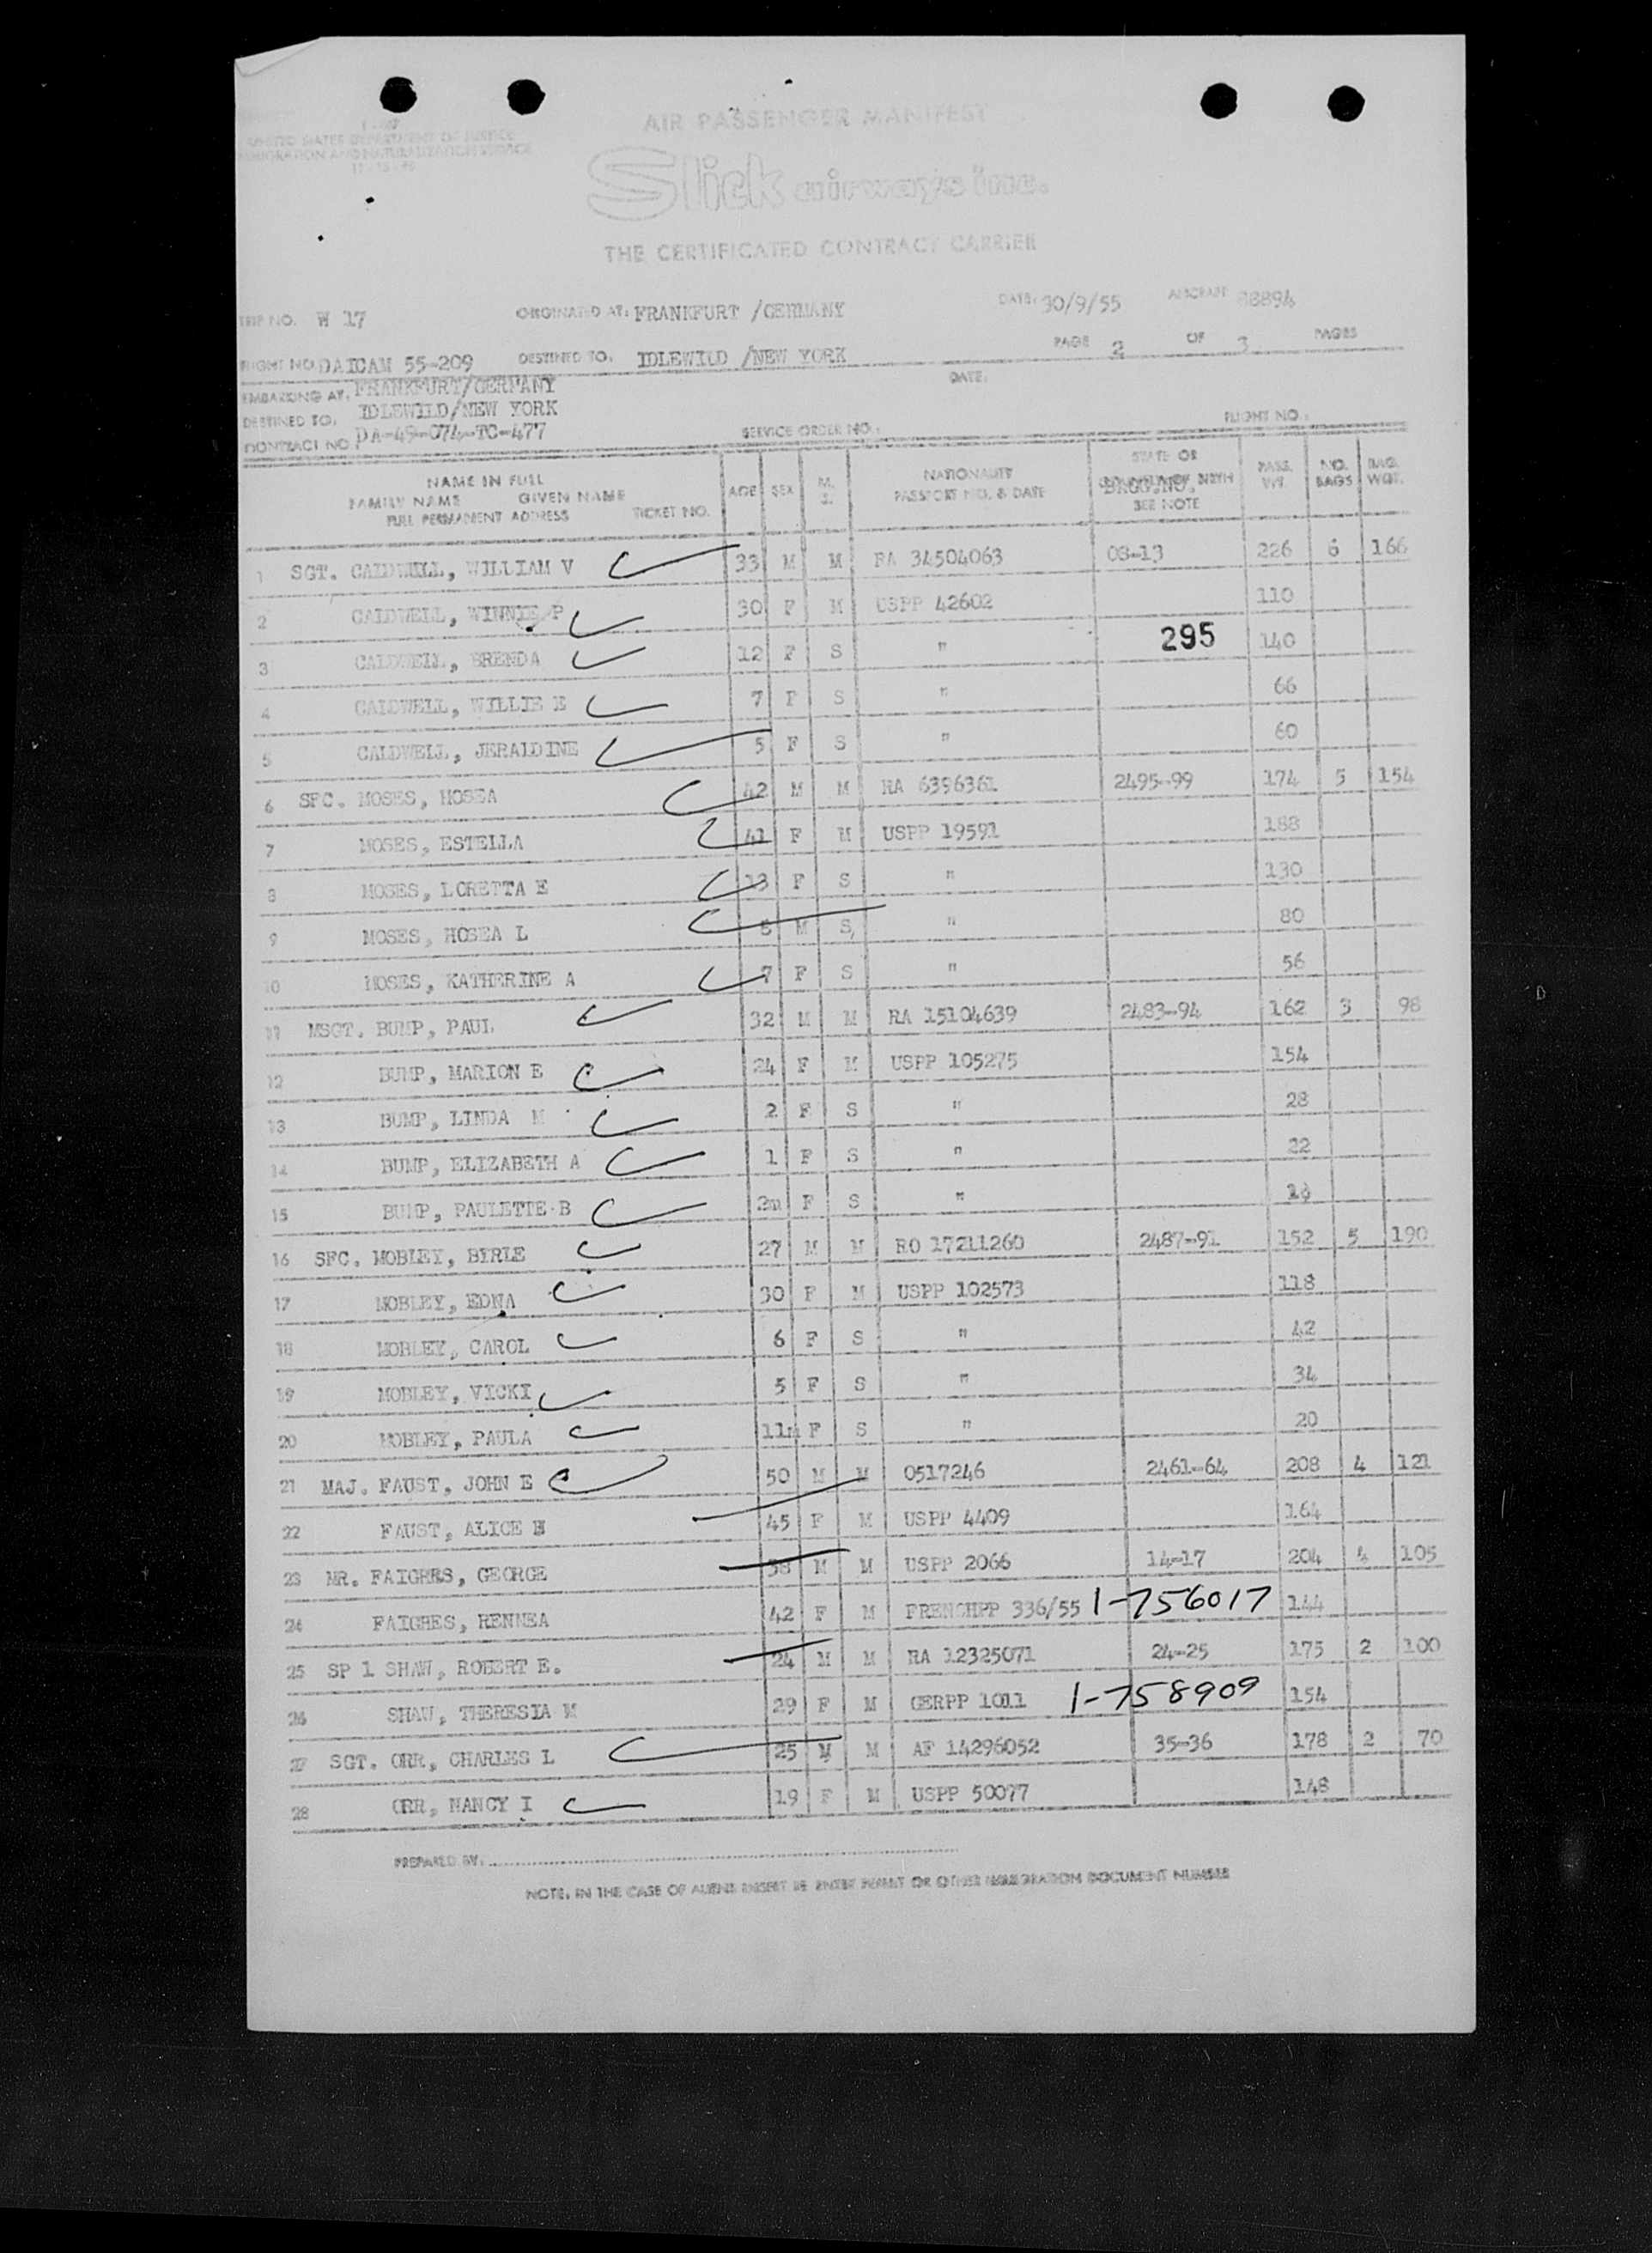 AIR PASSENGER MANIFEST
UNITED STATES DEPARTMENT OF JUSTICE
IMMIGRATION AND NATURALIZATION SERVICE
Slick airways inc.
THE CERTIFICATED CONTRACT CARRIER
TRIP NO. W 17 ORIGINATED AT: FRANKFURT /GERMANY DATE: 30/9/55 AIRCRAFT 88894
FLIGHT NO DAICAM 55-209 DESTINED TO. IDLEWILD /NEW YORK PAGE 2 OF 3 PAGES
EMBARKING AT. FRANKFURT/GERMANY DATE.
DESTINED TO. IDLEWILD/NEW YORK FLIGHT NO.:
CONTRACT NO DA-49-074-TC-477 SERVICE ORDER NO.:
NAME IN FULL NATIONALITY STATE OR PASS. NO. BAG.
FAMILY NAME GIVEN NAME AGE SEX M. S. PASSPORT NO. & DATE BAGG.NO. WT. BAGS WGT.
FULL PERMANENT ADDRESS TICKET NO. SEE NOTE
1 SGT. CALDWELL, WILLIAM V 33 M M RA 34504063 08-13 226 6 166
2 CALDWELL, WINNIE P 30 F M USPP 42602 110
3 CALDWELL, BRENDA 12 F S " 295 140
4 CALDWELL, WILLIE E 7 F S " 66
5 CALDWELL, JERALDINE 5 F S " 60
6 SFC. MOSES, HOSEA 42 M M RA 6396361 2495-99 174 5 154
7 MOSES, ESTELLA 41 F M USPP 19591 188
8 MOSES, LORETTA E 13 F S " 130
9 MOSES, HOSEA L M S " 80
10 MOSES, KATHERINE A 7 F S " 56
11 MSGT. BUMP, PAUL 32 M M RA 15104639 2483-94 162 3 98
12 BUMP, MARION E 24 F M USPP 105275 154
13 BUMP, LINDA M 2 F S " 28
14 BUMP, ELIZABETH A 1 F S " 22
15 BUMP, PAULETTE B 2m F S "
16 SFC. MOBLEY, BYRLE 27 M M RO 17211260 2487-91 152 5 190
17 MOBLEY, EDNA 30 F M USPP 102573 118
18 MOBLEY, CAROL 6 F S " 42
19 MOBLEY, VICKI 5 F S " 34
20 MOBLEY, PAULA 11m F S " 20
21 MAJ. FAUST, JOHN E 50 M M 0517246 2461-64 208 4 121
22 FAUST, ALICE H 45 F M USPP 4409 164
23 MR. FAIGHES, GEORGE 38 M M USPP 2066 14-17 204 4 105
24 FAIGHES, RENNEA 42 F M FRENCHPP 336/55 1-756017 144
25 SP 1 SHAW, ROBERT E. 24 M M RA 12325071 24-25 175 2 100
26 SHAW, THERESIA M 29 F M GERPP 1011 1-758909 154
27 SGT. ORR, CHARLES L 25 M M AF 14296052 35-36 178 2 70
28 ORR, NANCY I 19 F M USPP 50097 148
PREPARED BY:
NOTE. IN THE CASE OF ALIENS INSERT RE ENTRY PERMIT OR OTHER IMMIGRATION DOCUMENT NUMBER